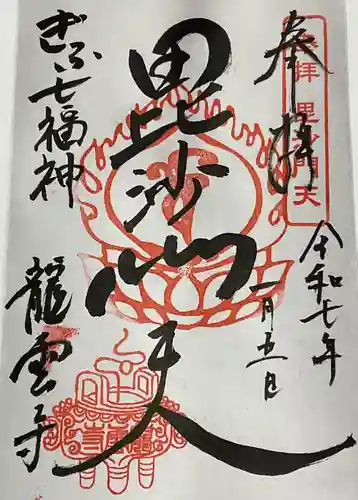 奉拝
令和七年
一月五日
毘沙門天
ぎふ七福神
龍雲寺
参拝 毘沙門天